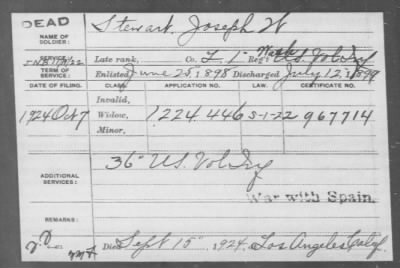 DEAD
NAME OF SOLDIER: Stewart, Joseph W
SERVICE: Late rank, Co. L 1" Reg't Wash. U.S. Vol Inf
TERM OF SERVICE: Enlisted June 25, 1898 Discharged July 12", 1899
DATE OF FILING. CLASS. APPLICATION NO. LAW. CERTIFICATE NO.
Invalid,
1924 Oct 7 Widow, 1224446 5-1-22 967714
Minor,
ADDITIONAL SERVICES: 36" U.S. Vol Inf
War with Spain.
REMARKS:
Died Sept 15" 1924, Los Angeles Calif.